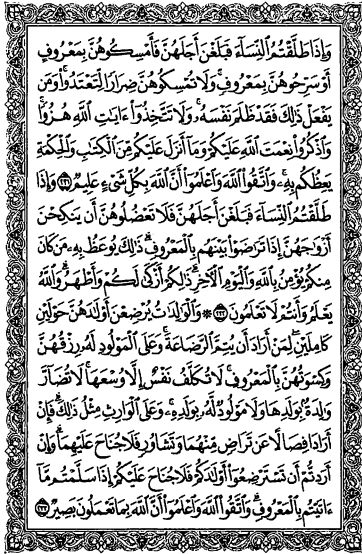 وَإِذَا طَلَّقْتُمُ ٱلنِّسَآءَ فَبَلَغْنَ أَجَلَهُنَّ فَأَمْسِكُوهُنَّ بِمَعْرُوفٍ
أَوْ سَرِّحُوهُنَّ بِمَعْرُوفٍۚ وَلَا تُمْسِكُوهُنَّ ضِرَارًا لِّتَعْتَدُوا۟ۚ وَمَن
يَفْعَلْ ذَٰلِكَ فَقَدْ ظَلَمَ نَفْسَهُۥۚ وَلَا تَتَّخِذُوٓا۟ ءَايَٰتِ ٱللَّهِ هُزُوًاۚ
وَٱذْكُرُوا۟ نِعْمَتَ ٱللَّهِ عَلَيْكُمْ وَمَآ أَنزَلَ عَلَيْكُم مِّنَ ٱلْكِتَٰبِ وَٱلْحِكْمَةِ
يَعِظُكُم بِهِۦۚ وَٱتَّقُوا۟ ٱللَّهَ وَٱعْلَمُوٓا۟ أَنَّ ٱللَّهَ بِكُلِّ شَىْءٍ عَلِيمٌ ٢٣١ وَإِذَا
طَلَّقْتُمُ ٱلنِّسَآءَ فَبَلَغْنَ أَجَلَهُنَّ فَلَا تَعْضُلُوهُنَّ أَن يَنكِحْنَ
أَزْوَٰجَهُنَّ إِذَا تَرَٰضَوْا۟ بَيْنَهُم بِٱلْمَعْرُوفِۗ ذَٰلِكَ يُوعَظُ بِهِۦ مَن كَانَ
مِنكُمْ يُؤْمِنُ بِٱللَّهِ وَٱلْيَوْمِ ٱلْءَاخِرِۗ ذَٰلِكُمْ أَزْكَىٰ لَكُمْ وَأَطْهَرُۗ وَٱللَّهُ
يَعْلَمُ وَأَنتُمْ لَا تَعْلَمُونَ ٢٣٢ ۞ وَٱلْوَٰلِدَٰتُ يُرْضِعْنَ أَوْلَٰدَهُنَّ حَوْلَيْنِ
كَامِلَيْنِۖ لِمَنْ أَرَادَ أَن يُتِمَّ ٱلرَّضَاعَةَۚ وَعَلَى ٱلْمَوْلُودِ لَهُۥ رِزْقُهُنَّ
وَكِسْوَتُهُنَّ بِٱلْمَعْرُوفِۚ لَا تُكَلَّفُ نَفْسٌ إِلَّا وُسْعَهَاۚ لَا تُضَآرَّ
وَٰلِدَةٌۢ بِوَلَدِهَا وَلَا مَوْلُودٌ لَّهُۥ بِوَلَدِهِۦۚ وَعَلَى ٱلْوَارِثِ مِثْلُ ذَٰلِكَۗ فَإِنْ
أَرَادَا فِصَالًا عَن تَرَاضٍ مِّنْهُمَا وَتَشَاوُرٍ فَلَا جُنَاحَ عَلَيْهِمَاۗ وَإِنْ
أَرَدتُّمْ أَن تَسْتَرْضِعُوٓا۟ أَوْلَٰدَكُمْ فَلَا جُنَاحَ عَلَيْكُمْ إِذَا سَلَّمْتُم مَّآ
ءَاتَيْتُم بِٱلْمَعْرُوفِۗ وَٱتَّقُوا۟ ٱللَّهَ وَٱعْلَمُوٓا۟ أَنَّ ٱللَّهَ بِمَا تَعْمَلُونَ بَصِيرٌ ٢٣٣